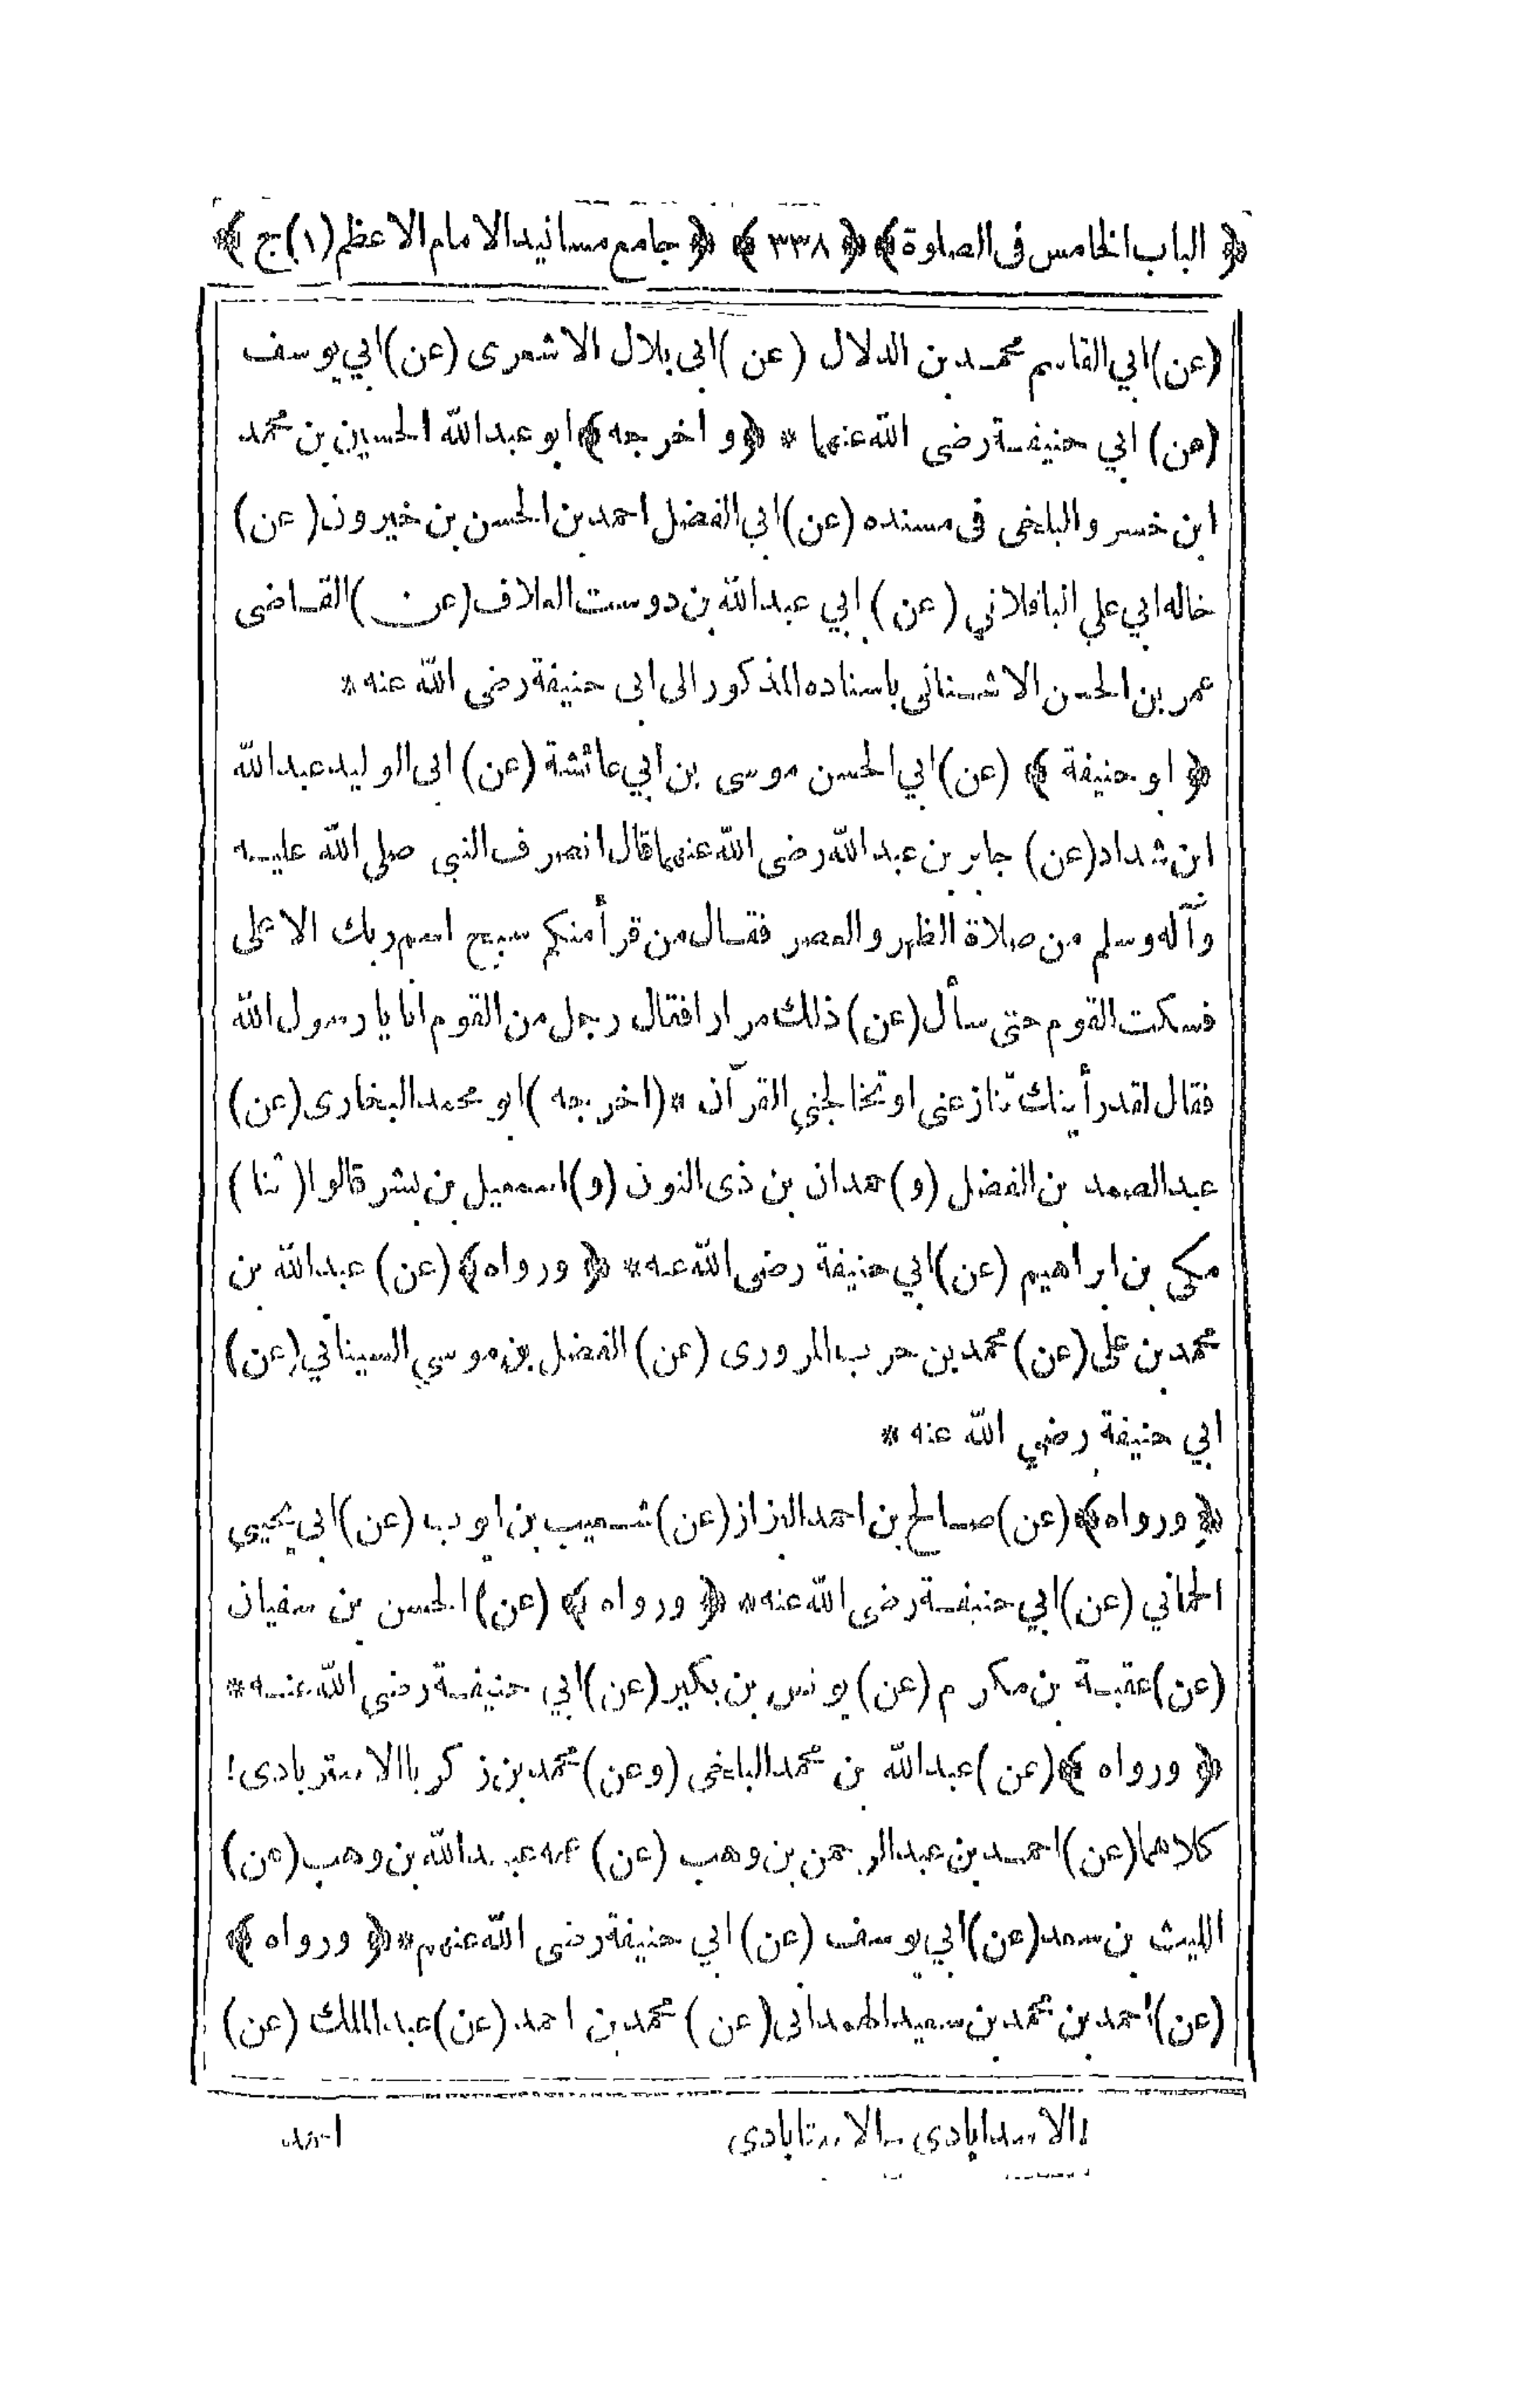 ﴿ الباب الخامس فى الصلوة ﴾ ﴿ ٣٣٨ ﴾ ﴿ جامع مسانيد الامام الاعظم (١) ج ﴾
(عن) ابي القاسم محمد بن الدلال (عن) ابى بلال الاشعرى (عن) ابي يوسف
(عن) ابي حنيفة رضى الله عنهما * ﴿ و اخرجه ﴾ ابو عبد الله الحسين بن محمد
ابن خسرو البلخى فى مسنده (عن) ابي الفضل احمد بن الحسن بن خيرون (عن)
خاله ابي علي الباقلاني (عن) ابي عبد الله بن دوست العلاف (عن) القاضى
عمر بن الحسن الاشنانى باسناده المذكور الى ابى حنيفة رضى الله عنه *
﴿ ابو حنيفة ﴾ (عن) ابي الحسن موسى بن ابي عائشة (عن) ابى الوليد عبد الله
ابن شداد (عن) جابر بن عبد الله رضى الله عنهما قال انصرف النبى صلى الله عليه
وآله وسلم من صلاة الظهر والعصر فقال من قرأ منكم سبح اسم ربك الاعلى
فسكت القوم حتى سأل (عن) ذلك مرارا فقال رجل من القوم انا يا رسول الله
فقال لقد رأيتك تنازعنى او تخالجنى القرآن * (اخرجه) ابو محمد البخارى (عن)
عبد الصمد بن الفضل (و) حمدان بن ذى النون (و) اسمعيل بن بشر قالوا (ثنا)
مكى بن ابراهيم (عن) ابي حنيفة رضى الله عنه * ﴿ ورواه ﴾ (عن) عبد الله بن
محمد بن على (عن) محمد بن حرب المروزى (عن) الفضل بن موسي السيناني (عن)
ابي حنيفة رضي الله عنه *
﴿ ورواه ﴾ (عن) صالح بن احمد البزاز (عن) شعيب بن ايوب (عن) ابى يحيي
الحماني (عن) ابي حنيفة رضى الله عنه * ﴿ ورواه ﴾ (عن) الحسن بن سفيان
(عن) عقبة بن مكرم (عن) يونس بن بكير (عن) ابي حنيفة رضي الله عنه *
﴿ ورواه ﴾ (عن) عبد الله بن محمد البلخى (وعن) محمد بن زكريا الاستربادى !
كلاهما (عن) احمد بن عبد الرحمن بن وهب (عن) عمه عبد الله بن وهب (عن)
الليث بن سعد (عن) ابي يوسف (عن) ابي حنيفة رضى الله عنهم * ﴿ ورواه ﴾
(عن) احمد بن محمد بن سعيد الهمدانى (عن) محمد بن احمد (عن) عبد الملك (عن)
! الاسدابادى ـ الاستابادى